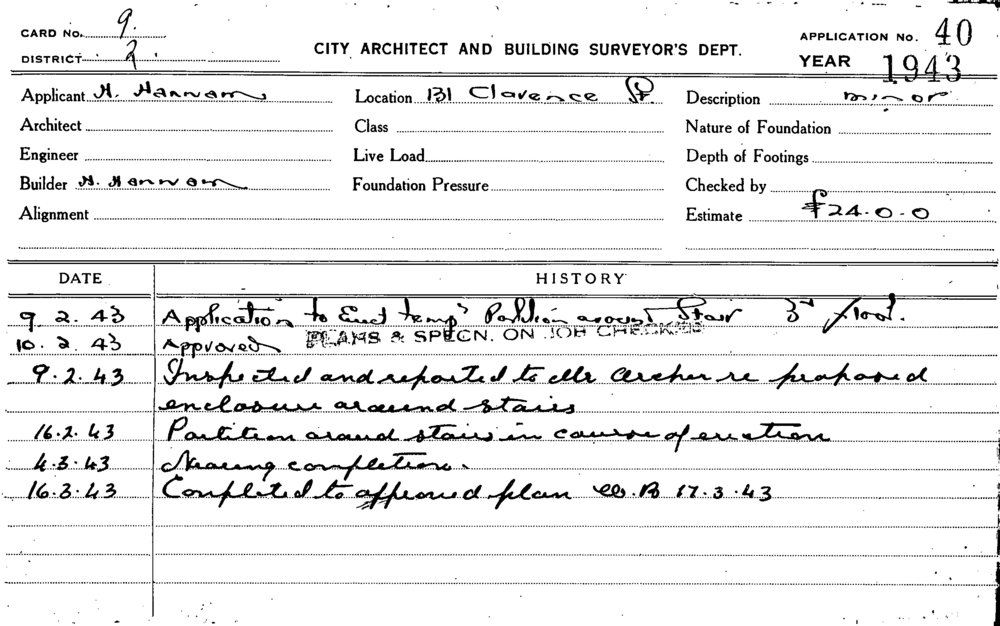 CARD No. 9.
DISTRICT 2
CITY ARCHITECT AND BUILDING SURVEYOR'S DEPT.
APPLICATION No. 40
YEAR 1943
Applicant H. Hannam Location 131 Clarence St. Description minor
Architect Class Nature of Foundation
Engineer Live Load Depth of Footings
Builder H. Hannam Foundation Pressure Checked by
Alignment Estimate £24.0.0
DATE HISTORY
9. 2. 43 Application to Erect temp Partition around Stair 3rd floor.
10. 2. 43 Approved PLANS & SPECN. ON JOB CHECKED
9. 2. 43 Inspected and reported to Mr Archer re proposed
enclosure around stairs
16. 2. 43 Partition around stairs in course of erection
4. 3. 43 Nearing completion.
16. 3. 43 Completed to approved plan 17. 3. 43